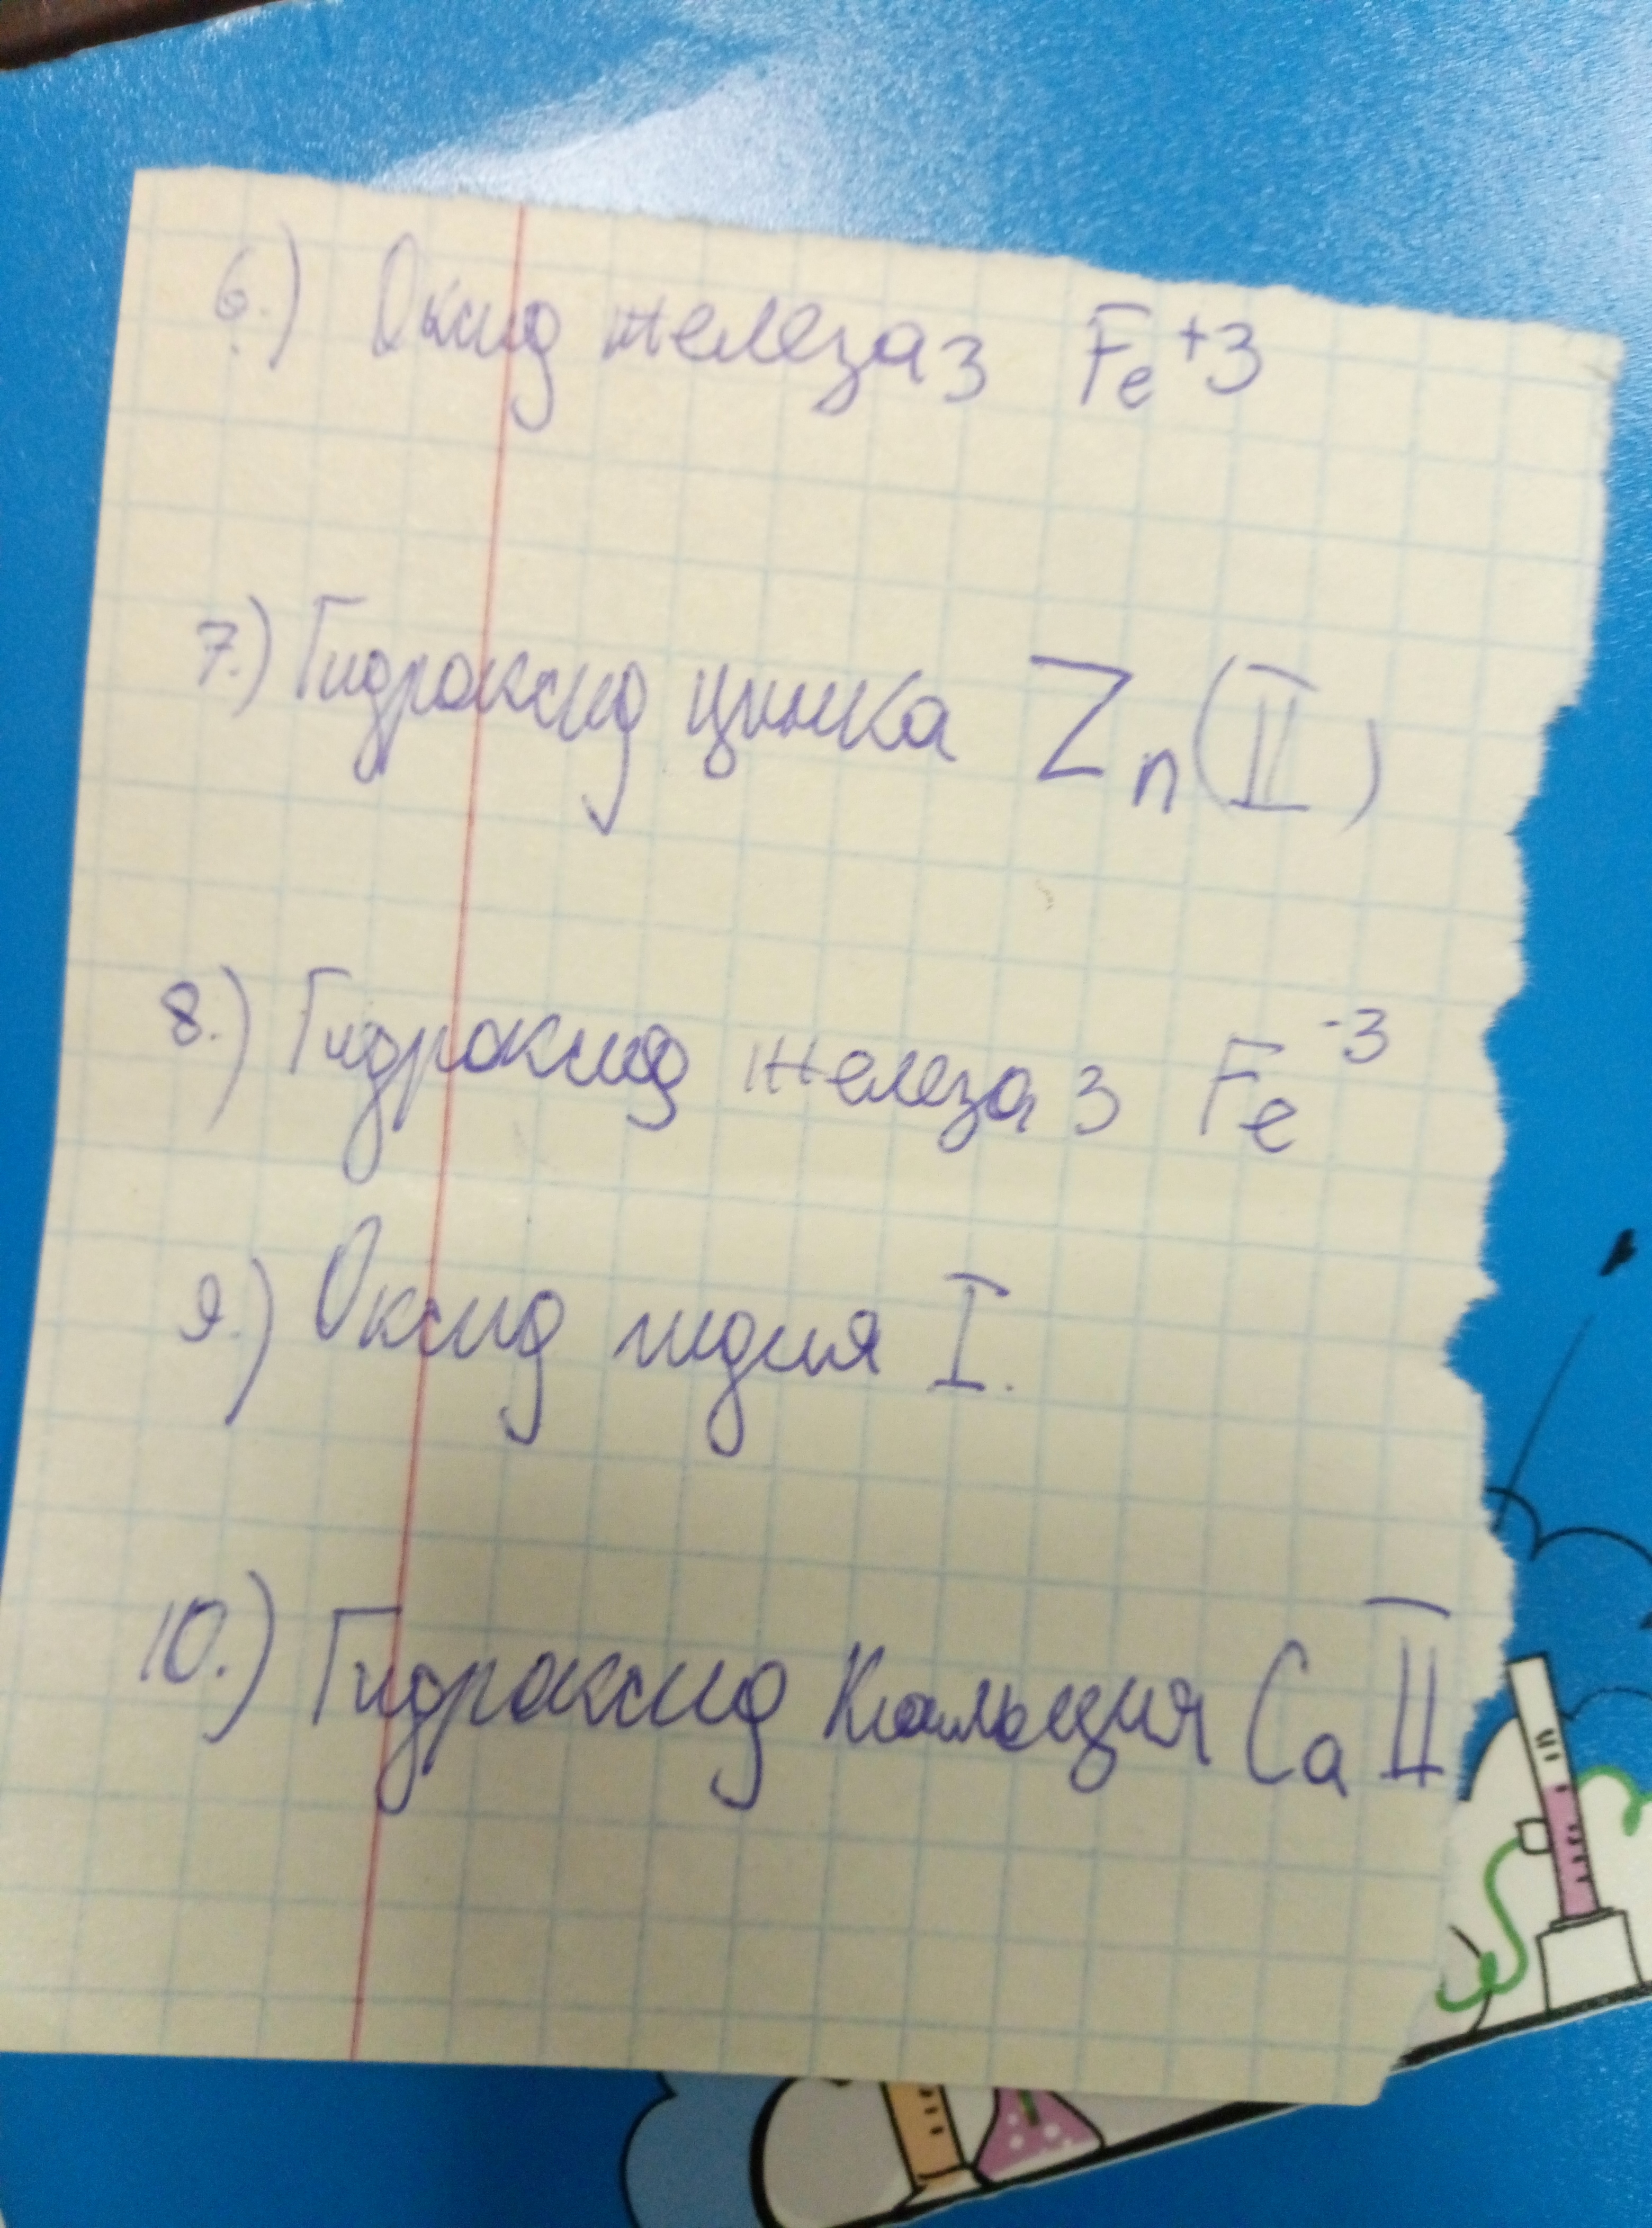 6.) Оксид железа 3 Fe +3
7.) Гидроксид цинка Zn (II)
8.) Гидроксид железа 3 Fe -3
9.) Оксид I.
10.) Гидроксид Кальция Ca II